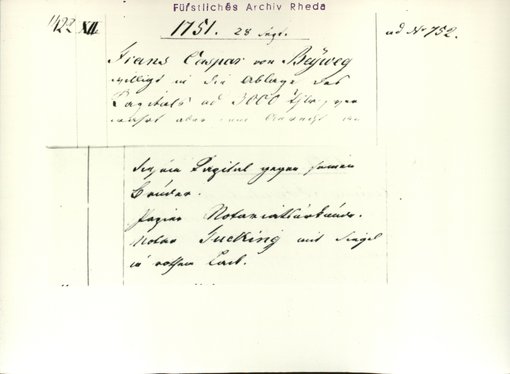 Fürstliches Archiv Rheda
1422 XII 1751. 28 Sept. ad No 752.
Frans Caspar von Bayweg
willigt in die Ablage des
Capitals ad 3000 Thlr, ver
wahrt aber
Capital gegen seinen
Bruder.
Papier Notariatsurkunde.
Notar Jucking mit Siegel
in rothem Lack.